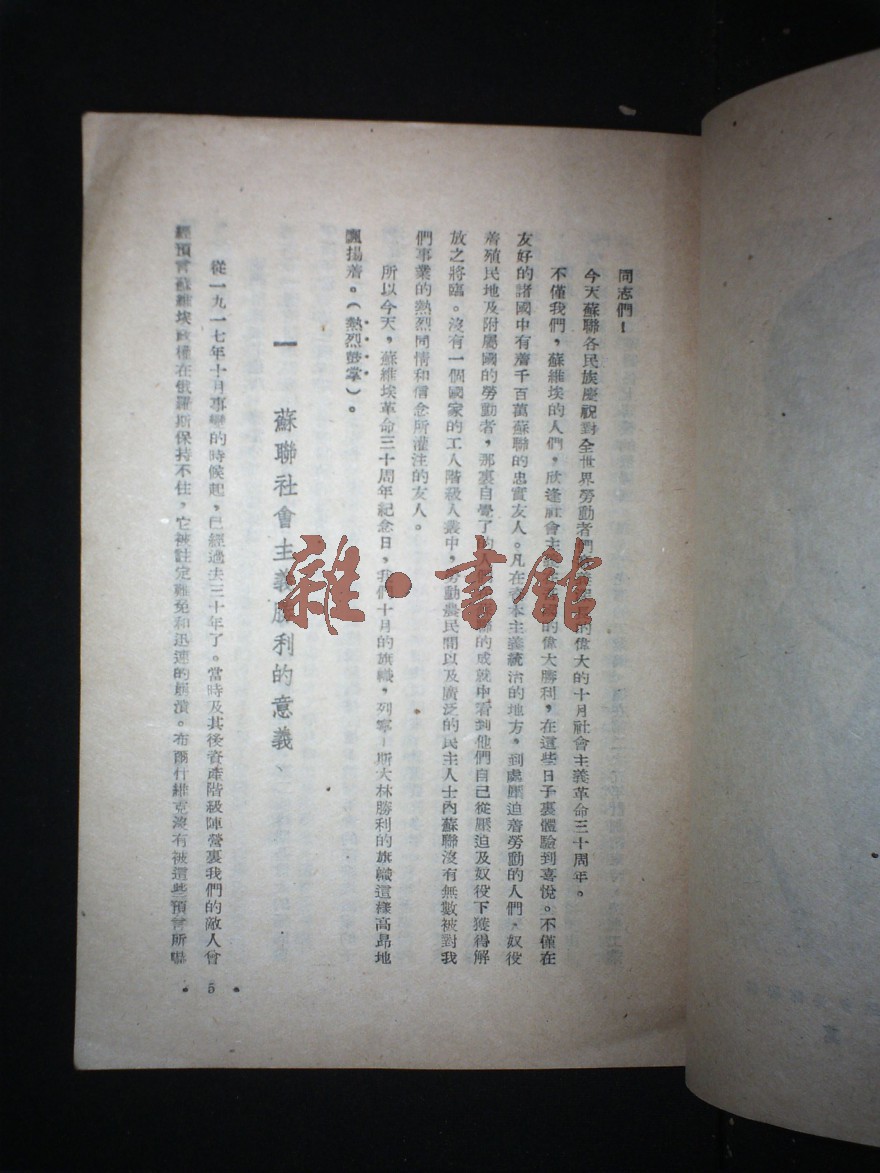 同志們！
今天蘇聯各民族慶祝對全世界勞動者們的偉大的十月社會主義革命三十周年。
不僅我們，蘇維埃的人們，欣逢社會主義的偉大勝利，在這些日子裏體驗到喜悅。不僅在
友好的諸國中有着千百萬蘇聯的忠實友人。凡在資本主義統治的地方，到處壓迫着勞動的人們，奴役
着殖民地及附屬國的勞動者，那裏自覺了的人們的成就中看到他們自己從壓迫及奴役下獲得解
放之將臨。沒有一個國家的工人階級人叢中，勞動農民間以及廣泛的民主人士內蘇聯沒有無數被對我
們事業的熱烈同情和信念所灌注的友人。
所以今天，蘇維埃革命三十周年紀念日，我們十月的旗幟，列寧—斯大林勝利的旗幟這樣高昂地
飄揚着。（熱烈鼓掌）。
一 蘇聯社會主義勝利的意義
從一九一七年十月事變的時候起，已經過去三十年了。當時及其後資產階級陣營裏我們的敵人曾
經預言蘇維埃政權在俄羅斯保持不住，它被註定難免和迅速的崩潰。布爾什維克沒有被這些預言所嚇
5
雜·書館